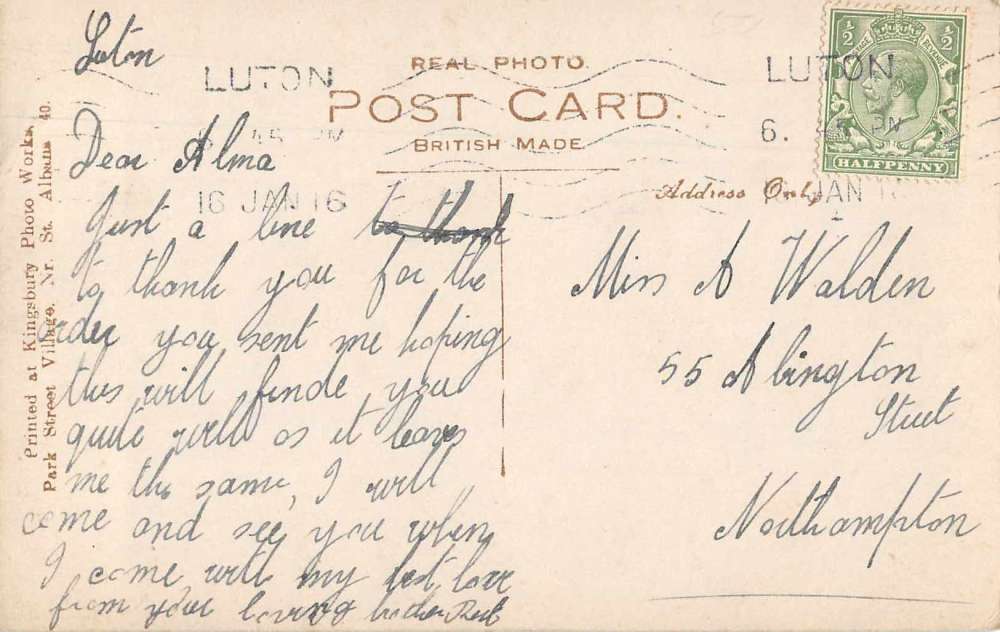 Luton
LUTON
REAL PHOTO.
POST CARD.
BRITISH MADE.
16 JAN 16
Dear Alma
Just a line to thank
to thank you for the
order you sent me hoping
this will finde you
quite well as it leaves
me the same, I will
come and see you when
I come with my best love
from your loving
Printed at Kingsbury Photo Works,
Park Street Village, Nr. St. Albans 40.
½ ½
HALFPENNY
LUTON
6. PM
JAN
Address Only
Miss A Walden
55 Abington
Street
Northampton